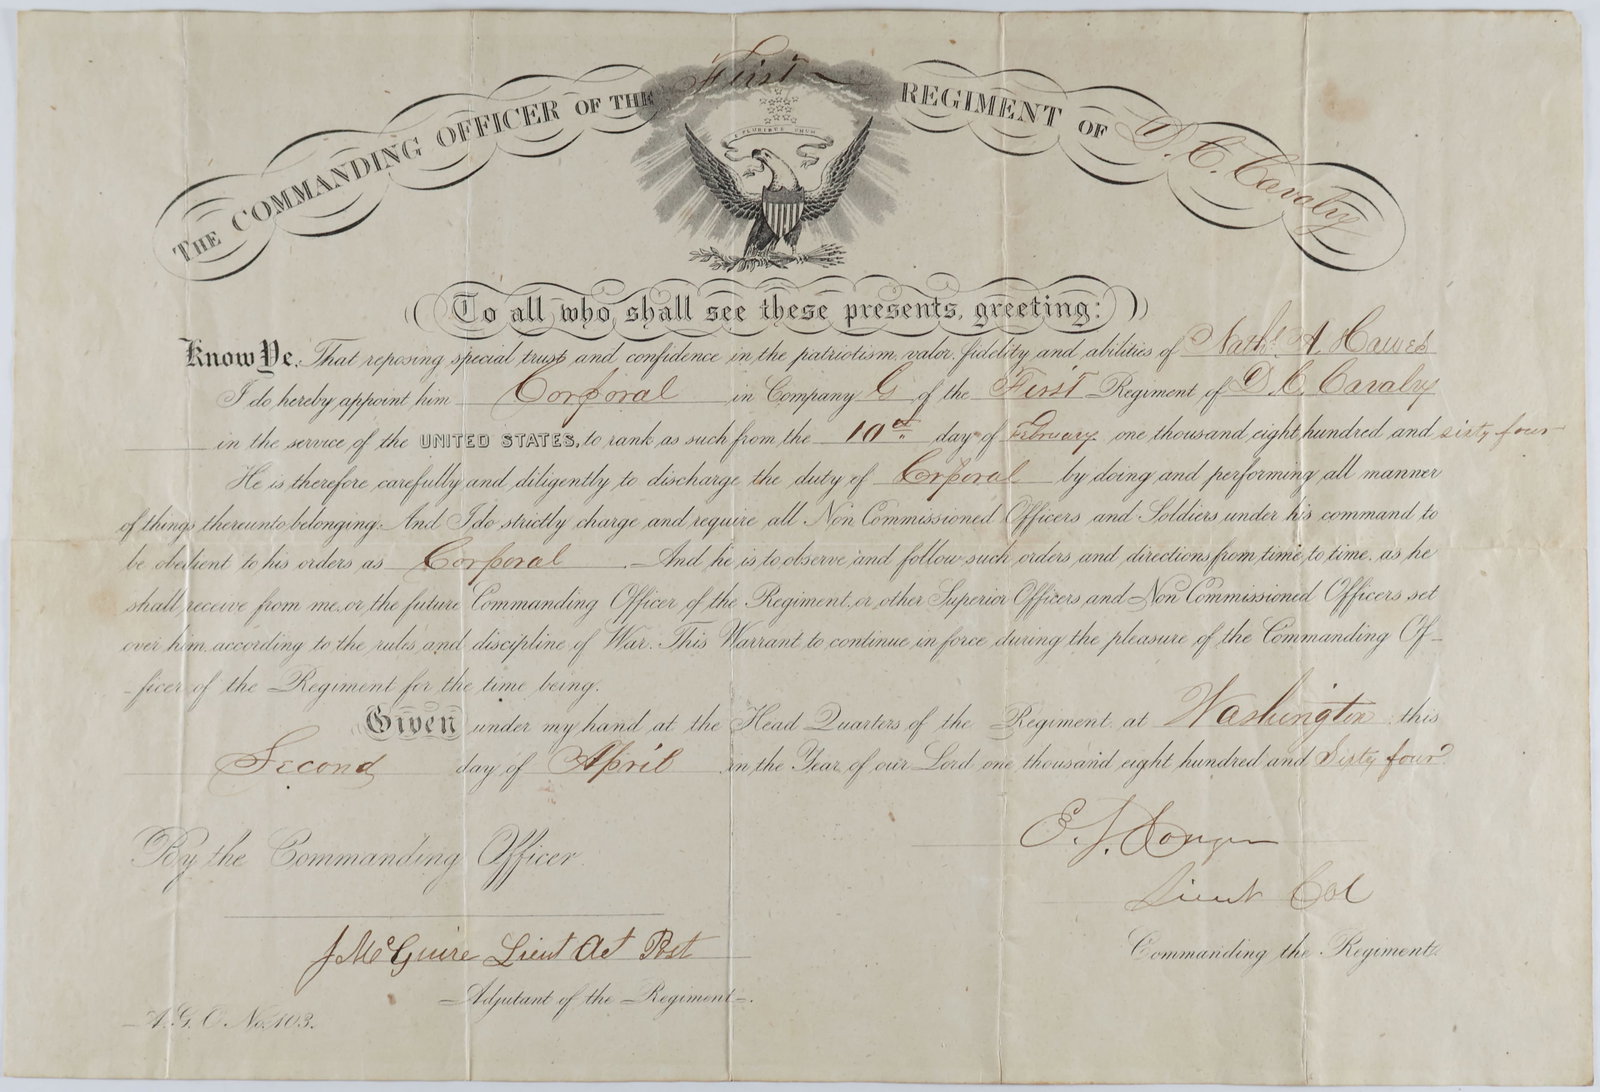 THE COMMANDING OFFICER OF THE First REGIMENT OF D. C. Cavalry
E PLURIBUS UNUM
To all who shall see these presents, greeting:
Know Ye: That reposing special trust and confidence in the patriotism, valor, fidelity and abilities of Nathl. A. Hawes
I do hereby appoint him Corporal in Company G of the First Regiment of D. C. Cavalry
in the service of the UNITED STATES, to rank as such from the 10th day of February one thousand eight hundred and sixty four
He is therefore carefully and diligently to discharge the duty of Corporal by doing and performing all manner
of things thereunto belonging. And I do strictly charge and require all Non Commissioned Officers and Soldiers under his command to
be obedient to his orders as Corporal. And he is to observe and follow such orders and directions from time to time, as he
shall receive from me, or the future Commanding Officer of the Regiment, or other Superior Officers and Non Commissioned Officers set
over him, according to the rules and discipline of War. This Warrant to continue in force during the pleasure of the Commanding Of-
-ficer of the Regiment for the time being.
Given under my hand at the Head Quarters of the Regiment at Washington this
Second day of April in the Year of our Lord one thousand eight hundred and Sixty four
By the Commanding Officer.
E. J. Conger
Lieut Col
Commanding the Regiment.
J McGuire Lieut Act Post
Adjutant of the Regiment.
A. G. O. No. 103.